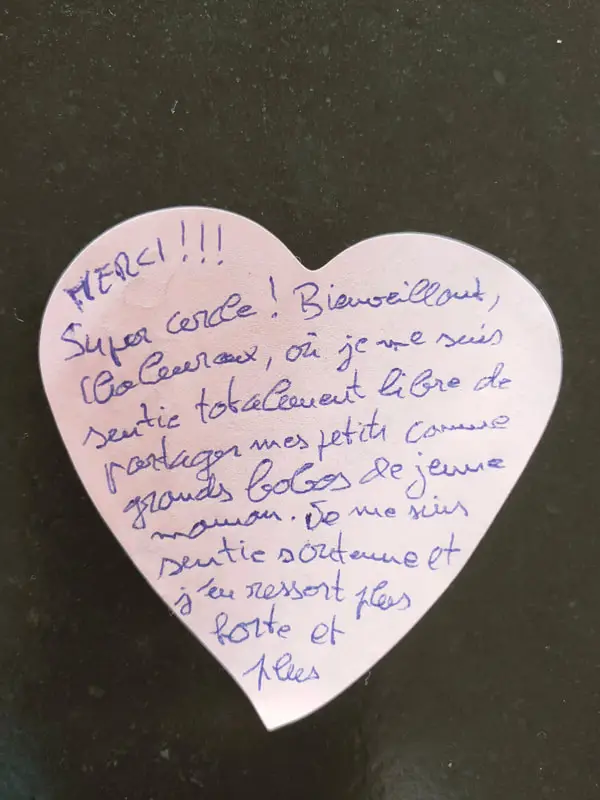 MERCI!!!
Super cercle! Bienveillant,
Chaleureux, où je me suis
sentie totalement libre de
partager mes petits comme
grands bobos de jeune
maman. Je me suis
sentie soutenue et
j'en ressort plus
forte et
plus